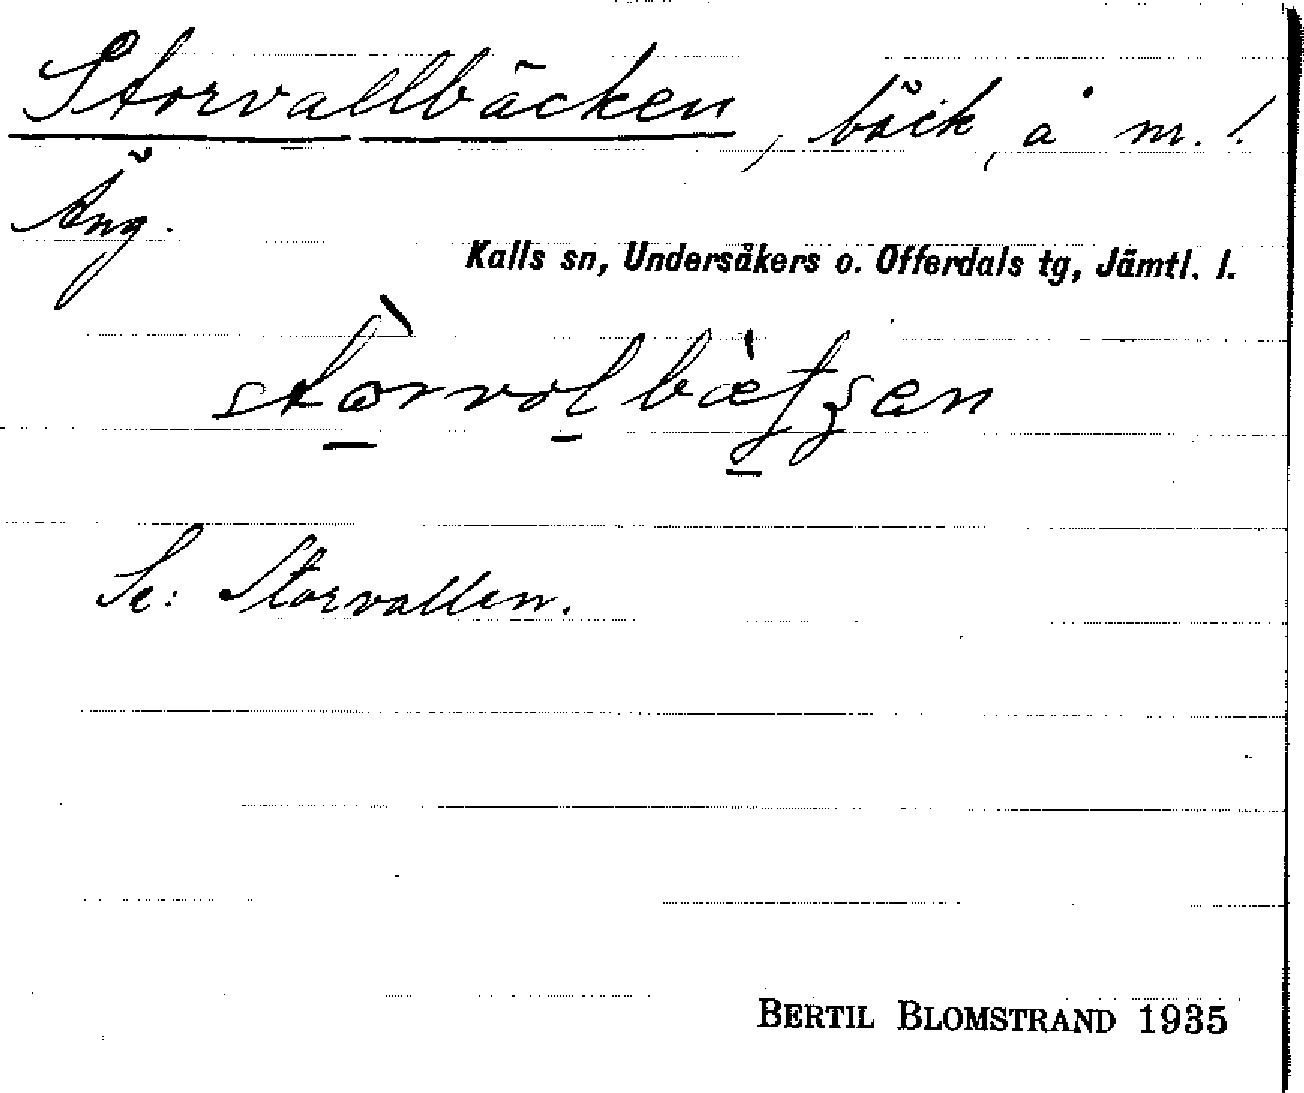 Storvallbäcken, bäck, å m. l.
Äng.
Kalls sn, Undersåkers o. Offerdals tg, Jämtl. l.
Se: Storvallen.
BERTIL BLOMSTRAND 1935